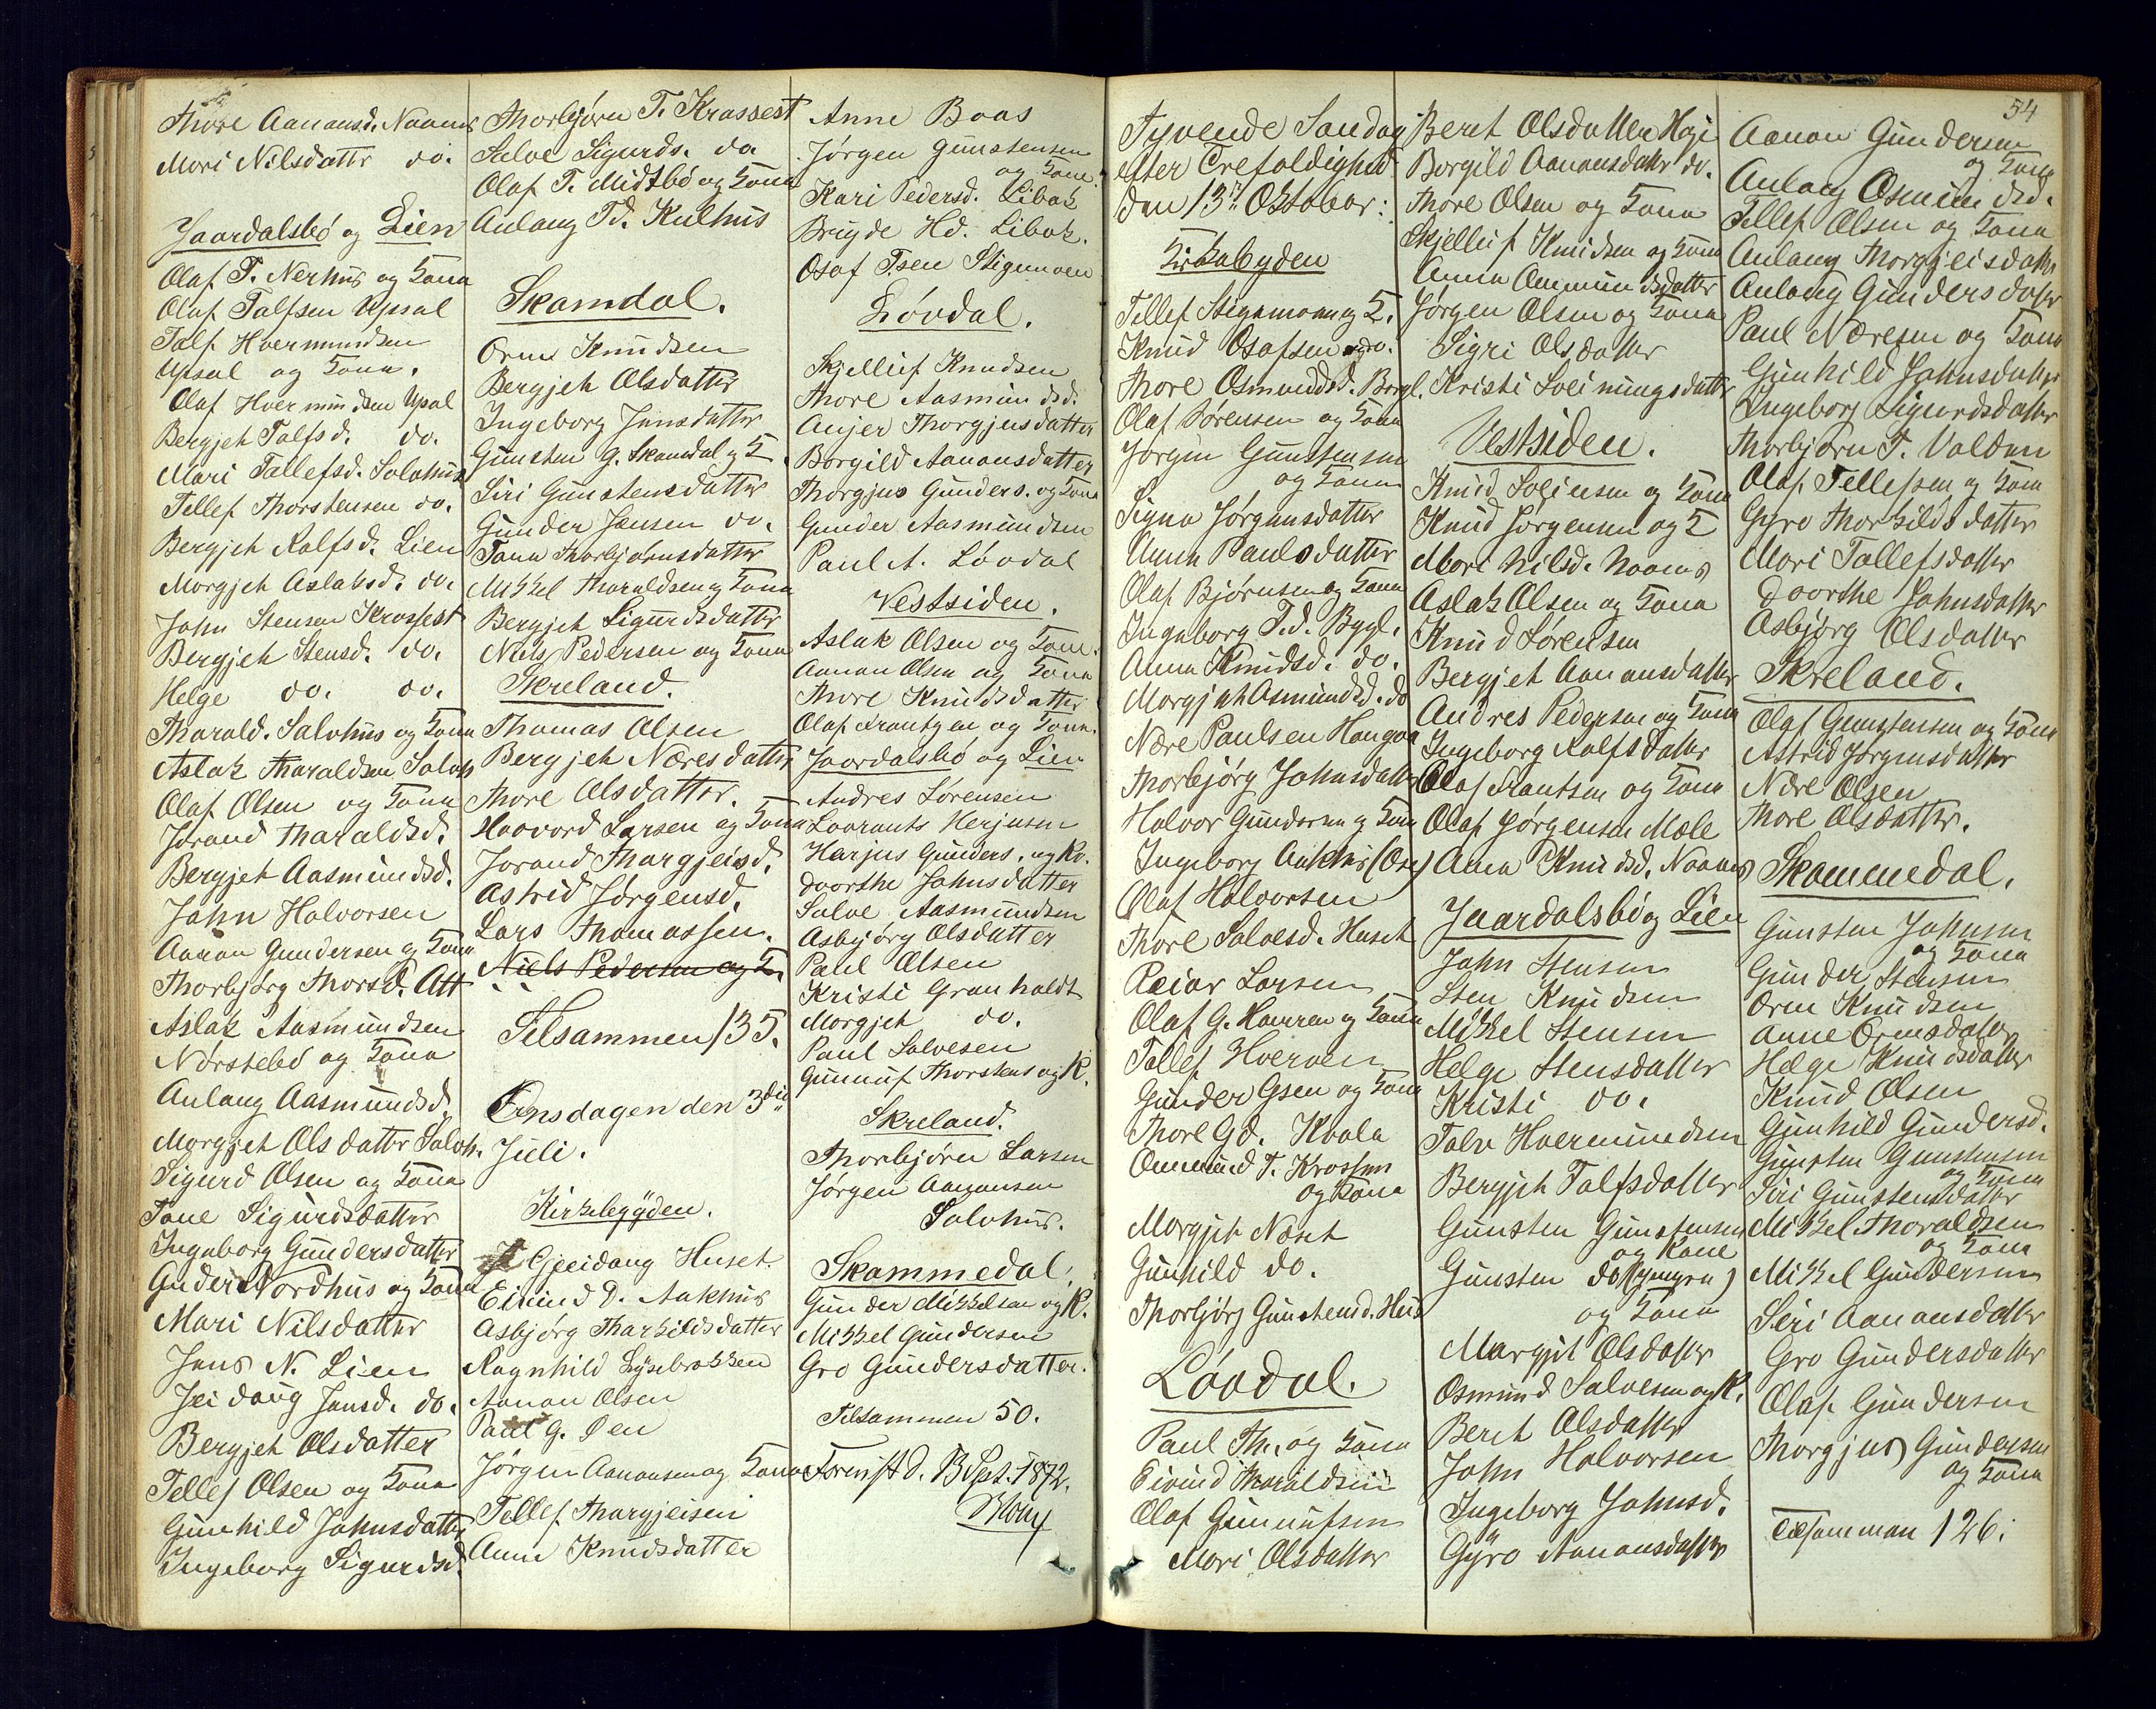 Thore Aanansd. Naanes
Mari Nilsdattr do.
Jaardalsbö og Lien
Olaf T. Nerhus og Kona
Olaf Talfsen Upsal
Talf Hvermundsen
Upsal og Kona.
Olaf Hvermundsen Upsal
Bergjet Talfsd. do.
Mari Tallefsd. Solohus
Tellef Thorstensen do.
Bergjeh Rolfsd. Lien
Morgjeh Aslaksd. do.
John Stensen Krosfest
Bergjeh Stensd. do.
Helge do. do.
Tharald. Salvhus og Kona
Aslak Tharaldsen Salvh
Olaf Olsen og Kona
Jorand Tharaldsd.
Bergjet Aasmundsd.
John Halvorsen
Aanon Gundersen og Kona
Thorbjørg Thorsd. Att
Aslak Aasmundsen
Nørstebö og Kona
Aulaug Aasmundsd.
Morgjet Olsdatter Salvh.
Sigurd Olsen og Kona
Tone Sigurdsdatter
Ingeborg Gundersdatter
Gunder Nordhus og Kona
Mari Nilsdatter
Jens N. Lien
Jeidaug Jensd. do.
Bergjeh Olsdatter
Tellef Olsen og Kona
Gunhild Johnsdatter
Ingeborg Sigurdsd.
Thorbjørn T. Krossest
Salve Sigurds. do
Olaf T. Midtbö og Kona
Aulaug Td. Kulhus
Skamdal.
Orm Knudsen
Bergjeh Olsdatter
Ingeborg Jensdatter
Gunsten G. Skamdal og K.
Siri Gunstensdatter
Gunder Jensen do.
Tone Thorbjørnsdatter
Mikkel Tharaldsen og Kona
Bergjeh Sigurdsdatter
Niels Pedersen og Kona
Skreland.
Thomas Olsen
Bergjeh Næresdatter
Thore Olsdatter.
Haavord Larsen og Kona
Jorand Thorgjeisd.
Astrid Jørgensd.
Lars Thomassen.
Niels Pedersen og K.
Tilsammen 135.
Onsdagen den 3die
Juli.
Kirkebygden.
Gjeidaug Huset
Eivind D. Aakhus
Asbjørg Tharkildsdatter
Ragnhild Lysebrokken
Aanon Olsen
Paul G. Øen
Jørgen Aanonsen og Kona
Tellef Thorgjeisen
Anne Knudsdatter
Anne Boas
Jørgen Gunstensen
og Kone.
Kari Pedersd. Libok
Brigde Hd. Libok.
Osof Tsen Stigemoen
Lövdal.
Skjelluf Knudsen
Thore Aasmundsd.
Anjer Thorgjusdatter
Borgild Aanonsdatter
Thorgjus Gunders. og Kona
Gunder Aasmundsen
Paul A. Lövdal
Vestsiden.
Aslak Olsen og Kone.
Aanon Olsen og Kona
Thore Knudsdatter
Olaf Frantzen og Kona.
Jaardalsbö og Lien
Andres Sørensen
Laurants Herjusen
Harjus Gunders. og Ko.
Doorthe Johnsdatter
Salve Aasmundsen
Asbjørg Olsdatter
Paul Olsen
Kristi Granholdt
Morgjeh do.
Paul Salvesen
Gunnuf Thorstens og K.
Skreland.
Thorbjørn Larsen
Jørgen Aanonsen
Salvhus.
Skammedal.
Gunder Mikkelsen og K.
Mikkel Gundersen
Gro Gundersdatter.
Tilsammen 50.
Forevist d. 13 Sept. 1872.
54
Tyvende Søndag
efter Trefoldighed
den 13de Oktober:
Kirkebygden
Tellef Stigemoen og K.
Knud Osofsen og do.
Thore Osmundsd. Brogl.
Olaf Sørensen og Kona
Jørgen Gunstensen
og Kona
Signe Jørgensdatter
Anne Paulsdatter
Olaf Bjørnsen og Kona
Ingeborg T.d. Bygl.
Anne Knudsd. do.
Morgjeh Asmundsd. do
Nære Paulsen Haugaa
Thorbjörg Johnsdatter
Halvor Gundersen og Kona
Ingeborg Aakhus (Ose)
Olaf Halvorsen
Thore Salvesd. Huset
Reiar Larsen
Olaf G. Hamren og Kona
Tallef Hverven
Gunder Gsen og Kona
Thore Gd. Kvale
Ommund T. Krossen
og Kona
Morgjet Neset
Gunhild do.
Thorbjørg Gunstensd. Hus
Lövdal.
Paul Th. og Kona
Eivind Tharaldsen
Olaf Gunnufsen
Mari Olsdatter
Beret Olsdatter Hegi
Borgild Aanonsdatter do.
Thore Olsen og Kona
Skjelluf Knudsen og Kona
Anna Ommundsdatter
Jørgen Olsen og Kona
Sigri Olsdatter
Kristi Sveinungsdatter
Vestsiden.
Knud Sveinsen og Kona
Knud Jørgensen og K
Mari Nilsd. Naanes
Aslak Olsen og Kona
Knud Sørensen
Bergjet Aanonsdatter
Andres Pedersen og Kona
Ingeborg Rolfsdatter
Olaf Frantsen og Kona
Olaf Jørgensen Mæle
Anne Knudsd. Naanes
Jaardalsbö og Lien
John Stensen
Sten Knudsen
Mikkel Stensen
Helge Stensdatter
Kristi do.
Talv Hvermundsen
Bergjeh Talfsdatter
Gunsten Gunstensen
og Kone
Gunsten do (yngre)
og Kona
Margjit Olsdatter
Osmund Salvesen og K.
Beret Olsdatter
John Halvorsen
Ingeborg Johnsd.
Gyro Aanonsdatter
Aanon Gundersen
og Kona
Aulaug Osmundsd.
Tellef Olsen og Kona
Aulaug Thorgjeisdatter
Aulaug Gundersdatter
Paul Næresen og Kona
Gunhild Johnsdatter
Ingeborg Sigurdsdatter
Thorbjørn T. Valden
Olaf Tellefsen og Kona
Gyro Thorkildsdatter
Mari Tallefsdatter
Doorthe Johnsdatter
Asbjørg Olsdatter
Skreland.
Olaf Gunstensen og Kona
Astrid Jørgensdatter
Nære Olsen
Thore Olsdatter.
Skammedal.
Gunsten Johnsen
og Kona
Gunder Stensen
Orm Knudsen
Anne Ormsdatter
Helge Knudsdatter
Knud Olsen
Gunhild Gundersd.
Gunsten Gunstensen
og Kona
Siri Gunstensdatter
Mikkel Thoraldsen
og Kona
Mikkel Gundersen
Siri Aanonsdatter
Gro Gundersdatter
Olaf Gundersen
Thorgjus Gundersen
og Kona
Tilsamman 126.